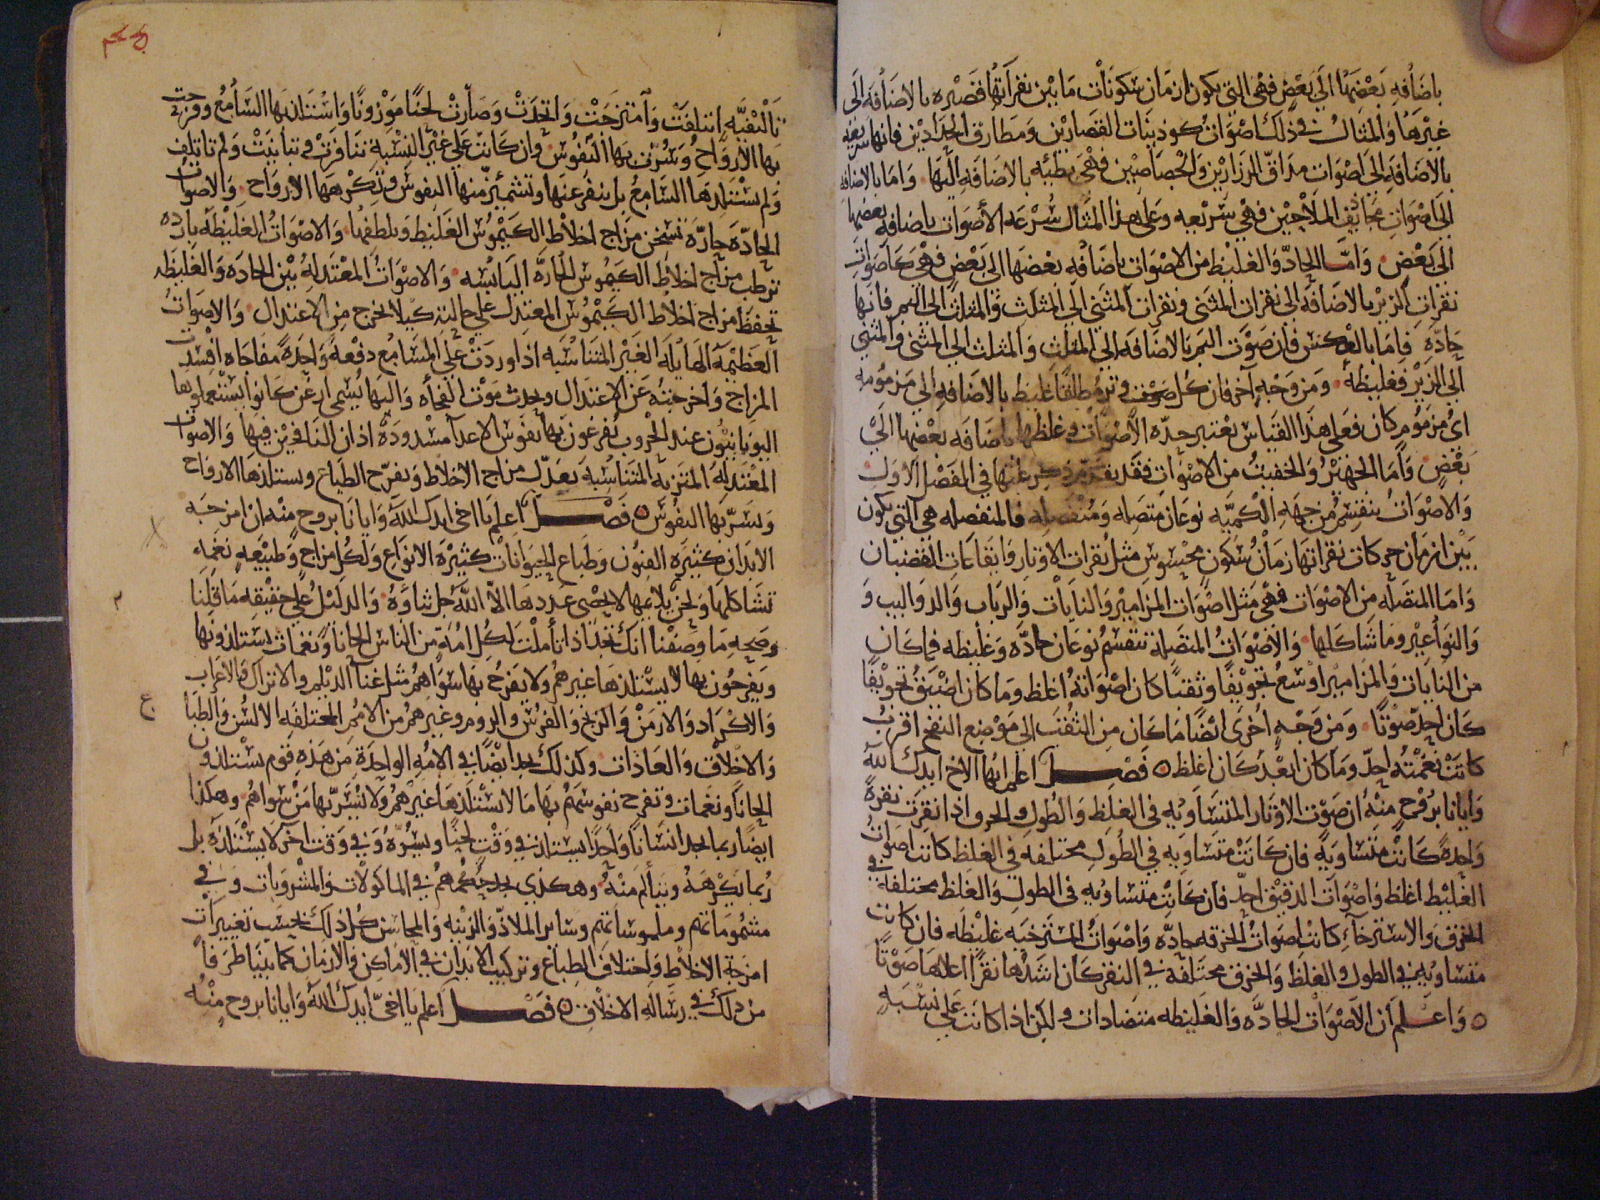 باضافه بعضها الى بعض فهى التى يكون ازمان سكونات ما بين نقراتها قصيره بالاضافه الى
غيرها والمثال فى ذلك اصوات كوذينات القصارين ومطارق الحدادين فانها سريعه
بالاضافه الى اصوات مداق الرزازين والجصاصين فهى بطيئه بالاضافه اليها واما بالاضافه
الى اصوات مجاذيف الملاحين فهى سريعه وعلى هذا المثال سرعه الأصوات باضافه بعضها
الى بعض واما الحاد والغليظ من الاصوات باضافه بعضها الى بعض فهى كاصوات
نقرات الزير بالاضافه الى نقرات المثنى ونقرات المثنى الى المثلث والمثلث الى البم فانها
حادة فاما بالعكس فان صوت البم بالاضافه الى المثلث والمثلث الى المثنى والمثنى
الى الزير فغليظة ومن وجه آخر فان كل صوت وتر مطلقا غليظ بالاضافه الى مزمومه
اى مزموم كان فعلى هذا القياس يعتبر حدة الاصوات وغلظها باضافه بعضها الى
بعض واما الجهير والخفيف من الاصوات فقد تقدم ذكر علتها فى الفصل الاول
والاصوات تنقسم من جهة الكميه نوعان متصله ومنفصله فالمنفصله هى التى يكون
بين ازمان حركات نقراتها زمان سكون محسوس مثل نقرات الاوتار وايقاعات القضبان
واما المتصله من الاصوات فهى مثل اصوات المزامير والنايات والرباب والدواليب و
والنواعير وما شاكلها والاصوات المتصله تنقسم نوعان حادة وغليظه فما كان
من النايات والمزامير اوسع تجويفا وثقبا كان اصواته اغلظ وما كان اضيق تجويفا
كان احد صوتا ومن وجه اخرى ايضا ما كان من الثقب الى موضع النفخ اقرب
كانت نغمته احد وما كان ابعد كان اغلظ فصل اعلم ايها الاخ ايدك الله
وايانا بروح منه ان صوت الاوتار المتساويه فى الغلظ والطول والخرق اذا نقرت نقرة
واحدة كانت متساوية فان كانت متساويه فى الطول مختلفه فى الغلظ كانت اصوات
الغليظ اغلظ واصوات الدقيق احد فان كانت متساويه فى الطول والغلظ مختلفه فى
الخرق والاسترخاء كانت اصوات المخرقه حادة واصوات المسترخيه غليظه فان كانت
متساويه فى الطول والغلظ والخرق مختلفة فى النقر كان اشدها نقرا اعلاها صوتا
واعلم ان الاصوات الحادة والغليظه متضادات ولكن اذا كانت على نسبه
تاليفيه ائتلفت وامتزجت واتحدت وصارت لحنا موزونا واستلذ بها السامع وفرحت
بها الارواح وسرت بها النفوس وان كانت على غير النسبة تنافرت وتباينت ولم تاتلف
ولم يستلذها السامع بل ينفر عنها وتشمئز منها النفوس وتكرهها الارواح والاصوات
الحادة حارة تسخن مزاج اخلاط الكيموس الغليظ ويلطفها والاصوات الغليظة بارده
ترطب مزاج اخلاط الكيموس الحارة اليابسه والاصوات المعتدلة بين الحادة والغليظه
تحفظ مزاج اخلاط الكيموس المعتدل على حالته كيلا يخرج من الاعتدال والاصوات
العظيمة الهايلة الغير المتناسبه اذا وردت على المسامع دفعة واحدة مفاجاه افسدت
المزاج واخرجته عن الاعتدال ويحدث موت الفجأه والتها يسمى ارغن كانوا يستعملونها
اليونانيون عند الحروب تفزعون بها نفوس الاعدا مشدودة اذان النافخين فيها والاصوات
المعتدله المتزنه المتناسبه يعدل مزاج الاخلاط ويفرح الطباع ويستلذها الارواح
ويسر بها النفوس فصل اعلم يا اخى ايدك الله وايانا بروح منه ان امزجه
الابدان كثيرة الفنون وطباع الحيوانات كثيرة الانواع ولكل مزاج وطبيعه نغمه
تشاكلها ولحن يلايمها لا يحصى عددها الا الله جل ثناؤه والدليل على حقيقه ما قلنا
وصحه ما وصفنا انك تجد اذا تأملت لكل امة من الناس الحانا ونغمات يستلذونها
ويفرحون بها لا يستلذها غيرهم ولا يفرح بها سواهم مثل غنا الديلم والاتراك والاعراب
والاكراد والارمن والزنج والفرس والروم وغيرهم من الامم المختلفه الالسن والطباع
والاخلاق والعادات وكذلك تجد ايضا فى الامه الواحدة من هذه قوم يستلذون
الحانا ونغمات وتفرح نفوسهم بها ما لا يستلذها غيرهم ولا تسر بها من سواهم وهكذا
ايضا ربما تجد انسانا واحدا يستلذ فى وقت لحنا ويسره وفى وقت اخر لا يستلذه بل
ربما يكرهه ويتألم منه وهكذى تجد حكمهم فى الماكولات والمشروبات وفى
مشموماتهم وملموساتهم وساير الملاذ والزينه والمحاسن كل ذلك بحسب تغييرات
امزجة الاخلاط واختلاف الطباع وتركيب الابدان فى الاماكن والازمان كما بينا طرفا
من ذلك فى رسالة الاخلاق فصل اعلم يا اخى ايدك الله وايانا بروح منه